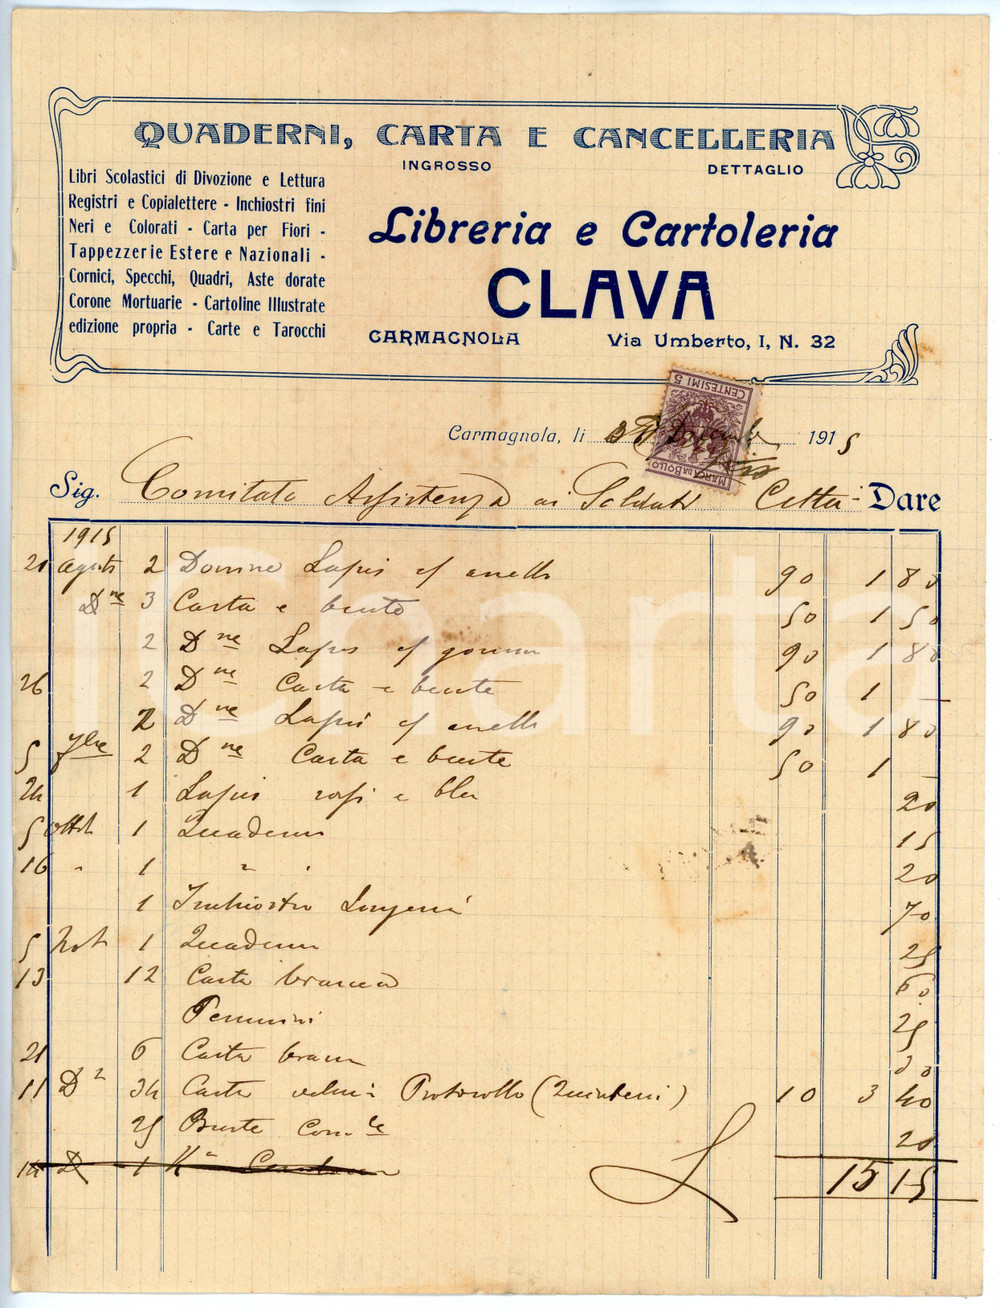 QUADERNI, CARTA E CANCELLERIA
INGROSSO DETTAGLIO
Libri Scolastici di Divozione e Lettura
Registri e Copialettere - Inchiostri fini
Neri e Colorati - Carta per Fiori -
Tappezzerie Estere e Nazionali -
Cornici, Specchi, Quadri, Aste dorate
Corone Mortuarie - Cartoline Illustrate
edizione propria - Carte e Tarocchi
Libreria e Cartoleria
CLAVA
CARMAGNOLA Via Umberto, I, N. 32
CENTESIMI 5
MARCA DA BOLLO
Carmagnola, li Dicembre 1915
Sig. Comitato Assistenza ai Soldati Città Dare
1915
21 Agosto 2 Donine Lapis c/ anelli 90 1 80
D ne 3 Carta e buste 50 1 50
2 D ne Lapis c/ gomma 90 1 80
26 2 D ne Carta e buste 50 1 —
2 D ne Lapis c/ anelli 90 1 80
5 7bre 2 D ne Carta e buste 50 1 —
24 1 Lapis rossi e bleu 20
5 Ottb 1 Quaderno 15
16 " 1 " 20
1 Inchiostro 70
5 Nov 1 Quaderno 25
13 12 Carta bianca 60
Pennini 25
21 6 Carta bianca 30
11 D 34 Carta Protocollo (Quinterni) 10 3 40
25 Buste Com le 20
14 D 1
15 15
iCharta